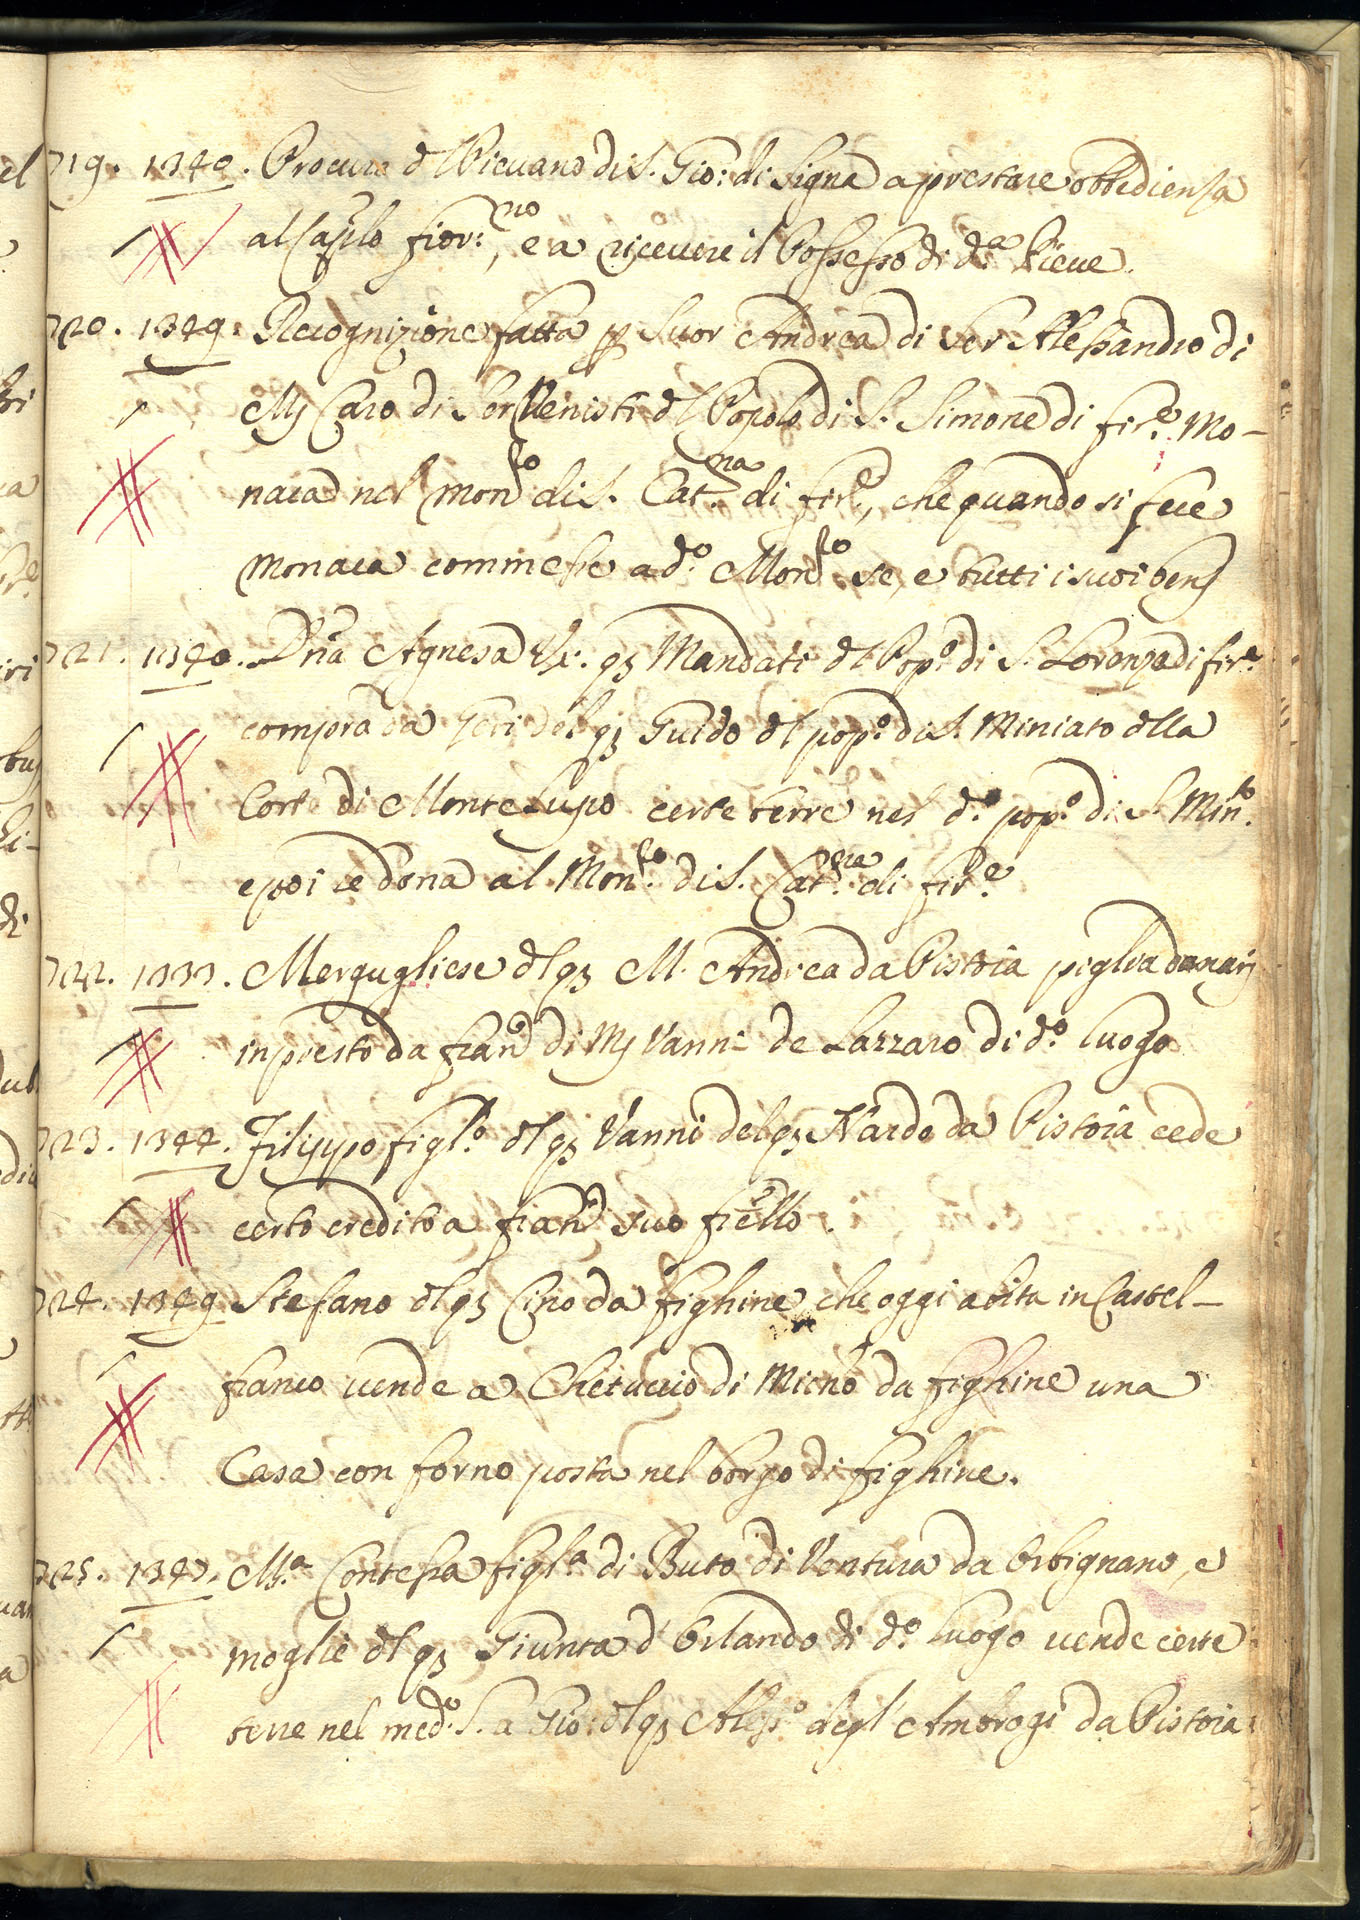 719. 1349. Procura dl Picuano di S. Gio: di Signa a prestare obbedienza
al Caplo fior:no, e a ricevere il Possesso di da Pieve.
720. 1349. Recognizione fatta p Suor Andrea di Ser Alessandro di
Mʃ Caro di Ser Venisti dl Popolo di S. Simone di fire. Mo-
naca nel monro di S. Catna di fire, che quando si fece
Monaca commesse a do. Monro se, e tutti i suoi benj
721. 1340. Dña Agnesa Vx. qʒ Mandati dl Popo di S. Lorenzo di fire
compra da Geri del qʒ Guido dl popo di S. Miniato dlla
Corte di Monte Lupo certe terre nel do popo di S. Minto.
e poi le dona al Monro. di S. Catna di fire
722. 1333. Mergugliese dl qʒ M. Andrea da Pistoia piglia danarj
in presto da fran di Mʃ Vanni de Lazzaro di do. luogo
723. 1344. Filippo figlo dl qʒ Vanni del qʒ Nardo da Pistoia cede
certo credito a fran suo fréllo.
724. 1349 Stefano dl qʒ Cino da fighine, che oggi abita in Castel-
franco vende a Chetuccio di Micho da fighine una
Casa con forno posta nel borgo di fighine.
725. 1347. Ma Contessa figla di Buto di Ventura da Orbignano, e
moglie dl qʒ Giunta d'Orlando di do. luogo vende certe
terre nel medo. S. a Gio: dl qʒ Alesso degl'Ambrogi da Pistoia